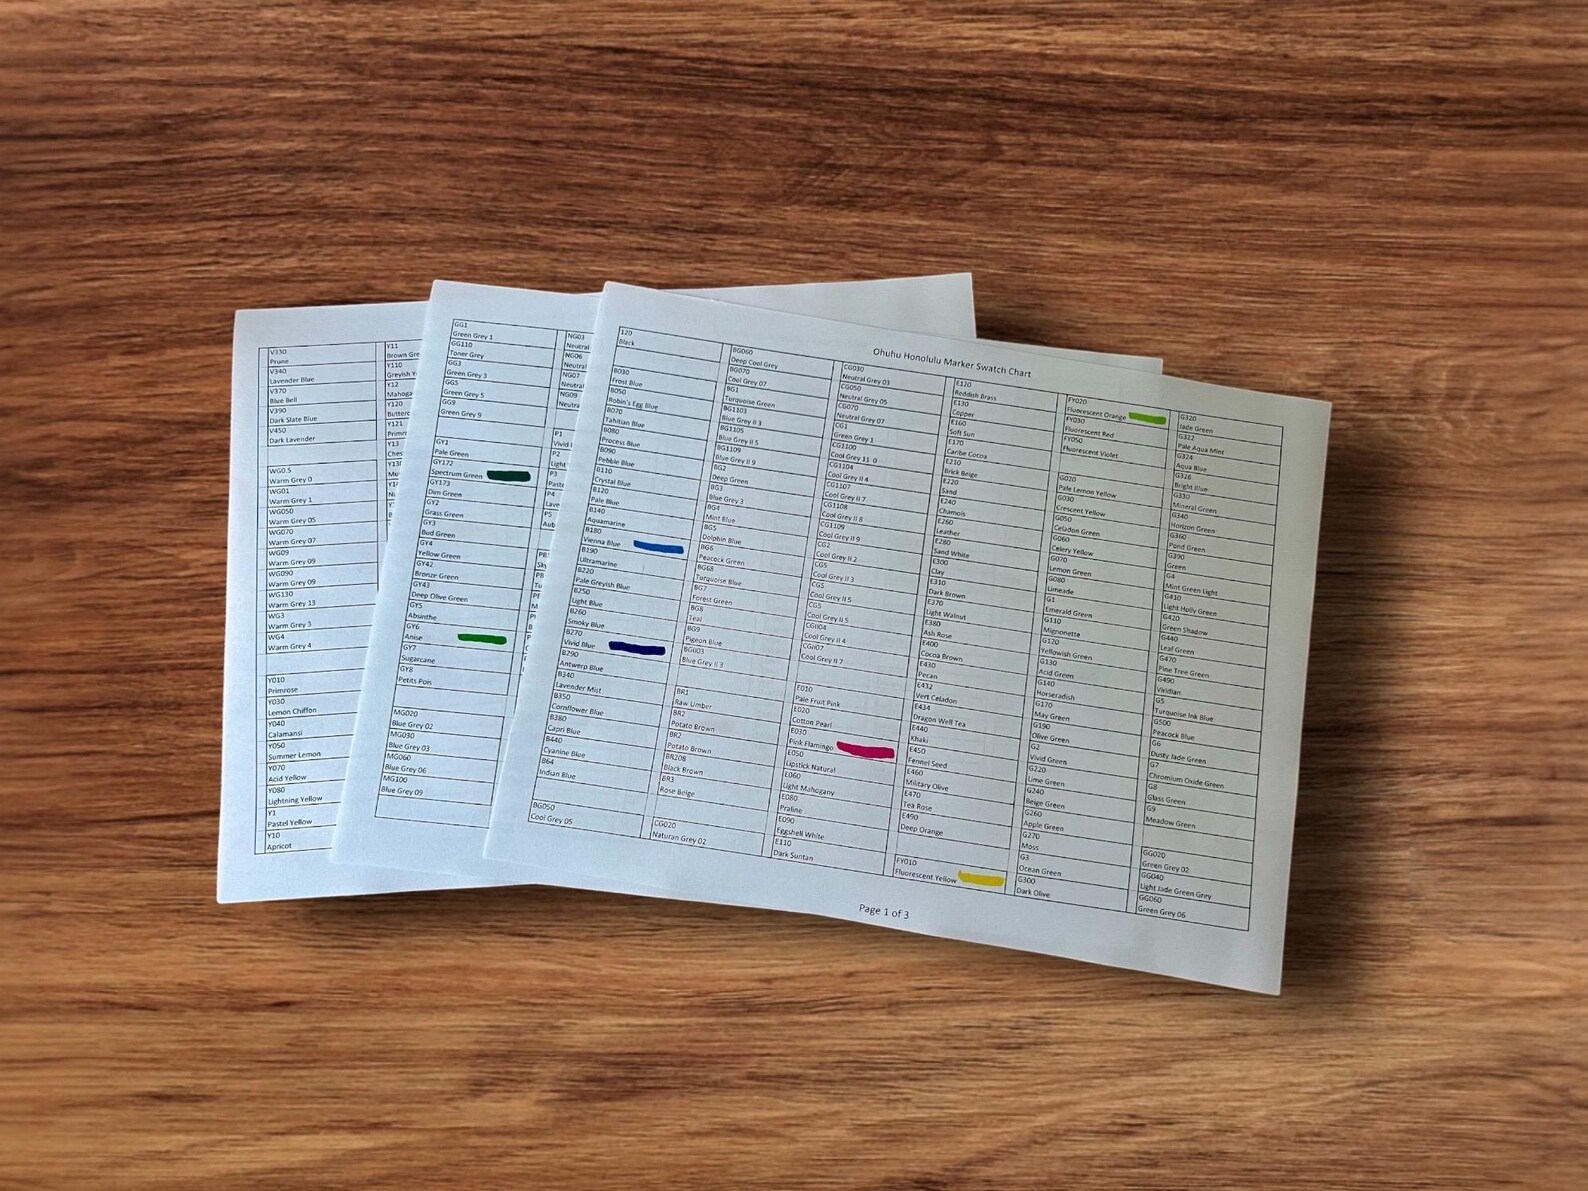 V330
Prune
V340
Lavender Blue
V370
Blue Bell
V390
Dark Slate Blue
V450
Dark Lavender
WG0.5
Warm Grey 0
WG01
Warm Grey 1
WG050
Warm Grey 05
WG070
Warm Grey 07
WG09
Warm Grey 09
WG090
Warm Grey 09
WG130
Warm Grey 13
WG3
Warm Grey 3
WG4
Warm Grey 4
Y010
Primrose
Y030
Lemon Chiffon
Y040
Calamansi
Y050
Summer Lemon
Y070
Acid Yellow
Y080
Lightning Yellow
Y1
Pastel Yellow
Y10
Apricot
Y11
Brown Gre
Y110
Greyish Y
Y12
Mahoga
Y120
Butterc
Y121
Primr
Y13
Ches
GG1
Green Grey 1
GG110
Toner Grey
GG3
Green Grey 3
GG5
Green Grey 5
GG9
Green Grey 9
GY1
Pale Green
GY172
Spectrum Green
GY173
Dim Green
GY2
Grass Green
GY3
Bud Green
GY4
Yellow Green
GY42
Bronze Green
GY43
Deep Olive Green
GY5
Absinthe
GY6
Anise
GY7
Sugarcane
GY8
Petits Pois
MG020
Blue Grey 02
MG030
Blue Grey 03
MG060
Blue Grey 06
MG100
Blue Grey 09
NG03
Neutral
NG06
Neutral
NG07
Neutral
NG09
Neutra
P1
Vivid
P2
Light
P3
Paste
P4
Lave
P5
Aub
Ohuhu Honolulu Marker Swatch Chart
120
Black
B030
Frost Blue
B050
Robin's Egg Blue
B070
Tahitian Blue
B080
Process Blue
B090
Pebble Blue
B110
Crystal Blue
B120
Pale Blue
B140
Aquamarine
B180
Vienna Blue
B190
Ultramarine
B220
Pale Greyish Blue
B250
Light Blue
B260
Smoky Blue
B270
Vivid Blue
B290
Antwerp Blue
B340
Lavender Mist
B350
Cornflower Blue
B380
Capri Blue
B440
Cyanine Blue
B64
Indian Blue
BG050
Cool Grey 05
BG060
Deep Cool Grey
BG070
Cool Grey 07
BG1
Turquoise Green
BG1103
Blue Grey II 3
BG1105
Blue Grey II 5
BG1109
Blue Grey II 9
BG2
Deep Green
BG3
Blue Grey 3
BG4
Mint Blue
BG5
Dolphin Blue
BG6
Peacock Green
BG68
Turquoise Blue
BG7
Forest Green
BG8
Teal
BG9
Pigeon Blue
BGII03
Blue Grey II 3
BR1
Raw Umber
BR2
Potato Brown
BR2
Potato Brown
BR208
Black Brown
BR3
Rose Beige
CG020
Naturan Grey 02
CG030
Neutral Grey 03
CG050
Neutral Grey 05
CG070
Neutral Grey 07
CG1
Green Grey 1
CG1100
Cool Grey 11 0
CG1104
Cool Grey II 4
CG1107
Cool Grey II 7
CG1108
Cool Grey II 8
CG1109
Cool Grey II 9
CG2
Cool Grey II 2
CG5
Cool Grey II 3
CG5
Cool Grey II 5
CG5
Cool Grey II 5
CGII04
Cool Grey II 4
CGII07
Cool Grey II 7
E010
Pale Fruit Pink
E020
Cotton Pearl
E030
Pink Flamingo
E050
Lipstick Natural
E060
Light Mahogany
E080
Praline
E090
Eggshell White
E110
Dark Suntan
E120
Reddish Brass
E130
Copper
E160
Soft Sun
E170
Caribe Cocoa
E210
Brick Beige
E220
Sand
E240
Chamois
E260
Leather
E280
Sand White
E300
Clay
E310
Dark Brown
E370
Light Walnut
E380
Ash Rose
E400
Cocoa Brown
E430
Pecan
E432
Vert Celadon
E434
Dragon Well Tea
E440
Khaki
E450
Fennel Seed
E460
Military Olive
E470
Tea Rose
E490
Deep Orange
FY010
Fluorescent Yellow
FY020
Fluorescent Orange
FY030
Fluorescent Red
FY050
Fluorescent Violet
G020
Pale Lemon Yellow
G030
Crescent Yellow
G050
Celadon Green
G060
Celery Yellow
G070
Lemon Green
G080
Limeade
G1
Emerald Green
G110
Mignonette
G120
Yellowish Green
G130
Acid Green
G140
Horseradish
G170
May Green
G190
Olive Green
G2
Vivid Green
G220
Lime Green
G240
Beige Green
G260
Apple Green
G270
Moss
G3
Ocean Green
G300
Dark Olive
G320
Jade Green
G322
Pale Aqua Mint
G324
Aqua Blue
G326
Bright Blue
G330
Mineral Green
G340
Horizon Green
G360
Pond Green
G390
Green
G4
Mint Green Light
G410
Light Holly Green
G420
Green Shadow
G440
Leaf Green
G470
Pine Tree Green
G490
Viridian
G5
Turquoise Ink Blue
G500
Peacock Blue
G6
Dusty Jade Green
G7
Chromium Oxide Green
G8
Glass Green
G9
Meadow Green
GG020
Green Grey 02
GG040
Light Jade Green Grey
GG060
Green Grey 06
Page 1 of 3